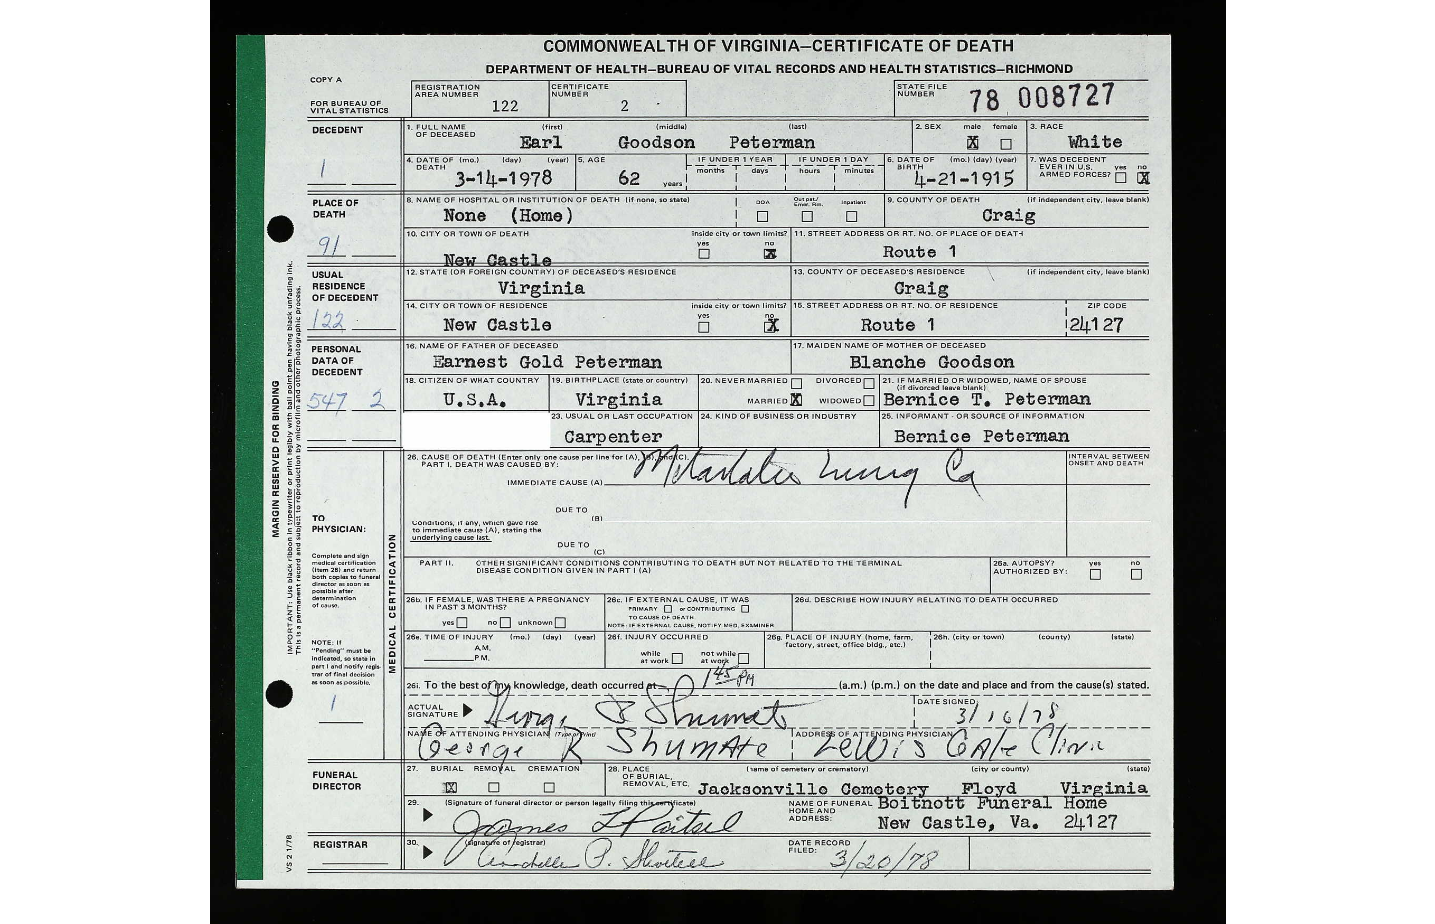 COMMONWEALTH OF VIRGINIA—CERTIFICATE OF DEATH
DEPARTMENT OF HEALTH—BUREAU OF VITAL RECORDS AND HEALTH STATISTICS—RICHMOND
COPY A
FOR BUREAU OF VITAL STATISTICS
REGISTRATION AREA NUMBER 122
CERTIFICATE NUMBER 2
STATE FILE NUMBER 78 008727
DECEDENT
1
1. FULL NAME OF DECEASED (first) (middle) (last)
Earl Goodson Peterman
2. SEX male female
X
3. RACE
White
4. DATE OF DEATH (mo.) (day) (year)
3-14-1978
5. AGE
62 years
IF UNDER 1 YEAR months days
IF UNDER 1 DAY hours minutes
6. DATE OF BIRTH (mo.) (day) (year)
4-21-1915
7. WAS DECEDENT EVER IN U.S. ARMED FORCES? yes no
X
PLACE OF DEATH
91
8. NAME OF HOSPITAL OR INSTITUTION OF DEATH (if none, so state)
None (Home)
DOA Out pat./ Emer. Rm. Inpatient
9. COUNTY OF DEATH (if independent city, leave blank)
Craig
10. CITY OR TOWN OF DEATH inside city or town limits? yes no
New Castle X
11. STREET ADDRESS OR RT. NO. OF PLACE OF DEATH
Route 1
USUAL RESIDENCE OF DECEDENT
122
12. STATE (OR FOREIGN COUNTRY) OF DECEASED'S RESIDENCE
Virginia
13. COUNTY OF DECEASED'S RESIDENCE (if independent city, leave blank)
Craig
14. CITY OR TOWN OF RESIDENCE inside city or town limits? yes no
New Castle X
15. STREET ADDRESS OR RT. NO. OF RESIDENCE ZIP CODE
Route 1 24127
PERSONAL DATA OF DECEDENT
547 2
16. NAME OF FATHER OF DECEASED
Earnest Gold Peterman
17. MAIDEN NAME OF MOTHER OF DECEASED
Blanche Goodson
18. CITIZEN OF WHAT COUNTRY
U.S.A.
19. BIRTHPLACE (state or country)
Virginia
20. NEVER MARRIED DIVORCED
MARRIED X WIDOWED
21. IF MARRIED OR WIDOWED, NAME OF SPOUSE (if divorced leave blank)
Bernice T. Peterman
23. USUAL OR LAST OCCUPATION
Carpenter
24. KIND OF BUSINESS OR INDUSTRY
25. INFORMANT - OR SOURCE OF INFORMATION
Bernice Peterman
MARGIN RESERVED FOR BINDING
IMPORTANT: Use black ribbon in typewriter or print legibly with ball point pen having black unfading ink.
This is a permanent record and subject to reproduction by microfilm and other photographic process.
TO PHYSICIAN:
Complete and sign medical certification (Item 26) and return both copies to funeral director as soon as possible after determination of cause.
NOTE: If "Pending" must be indicated, so state in part I and notify registrar of final decision as soon as possible.
1
MEDICAL CERTIFICATION
26. CAUSE OF DEATH (Enter only one cause per line for (A), (B), and (C).
PART I. DEATH WAS CAUSED BY:
IMMEDIATE CAUSE (A) Lung Ca
INTERVAL BETWEEN ONSET AND DEATH
DUE TO (B)
Conditions, if any, which gave rise to immediate cause (A), stating the underlying cause last.
DUE TO (C)
PART II. OTHER SIGNIFICANT CONDITIONS CONTRIBUTING TO DEATH BUT NOT RELATED TO THE TERMINAL DISEASE CONDITION GIVEN IN PART I (A)
26a. AUTOPSY? AUTHORIZED BY: yes no
26b. IF FEMALE, WAS THERE A PREGNANCY IN PAST 3 MONTHS?
yes no unknown
26c. IF EXTERNAL CAUSE, IT WAS
PRIMARY or CONTRIBUTING
TO CAUSE OF DEATH
NOTE: IF EXTERNAL CAUSE, NOTIFY MED. EXAMINER
26d. DESCRIBE HOW INJURY RELATING TO DEATH OCCURRED
26e. TIME OF INJURY (mo.) (day) (year)
A.M.
P.M.
26f. INJURY OCCURRED
while at work not while at work
26g. PLACE OF INJURY (home, farm, factory, street, office bldg., etc.)
26h. (city or town) (county) (state)
26i. To the best of my knowledge, death occurred at 1 45 PM (a.m.) (p.m.) on the date and place and from the cause(s) stated.
ACTUAL SIGNATURE George R Shumate
DATE SIGNED 3/16/78
NAME OF ATTENDING PHYSICIAN (Type or Print)
George R Shumate
ADDRESS OF ATTENDING PHYSICIAN
Lewis Gale Clinic
FUNERAL DIRECTOR
27. BURIAL REMOVAL CREMATION
X
28. PLACE OF BURIAL, REMOVAL, ETC. (name of cemetery or crematory) (city or county) (state)
Jacksonville Cemetery Floyd Virginia
29. (Signature of funeral director or person legally filing this certificate)
James L
NAME OF FUNERAL HOME AND ADDRESS:
Boitnott Funeral Home
New Castle, Va. 24127
REGISTRAR
30. (signature of registrar)
P.
DATE RECORD FILED: 3/20/78
VS 2 1/78